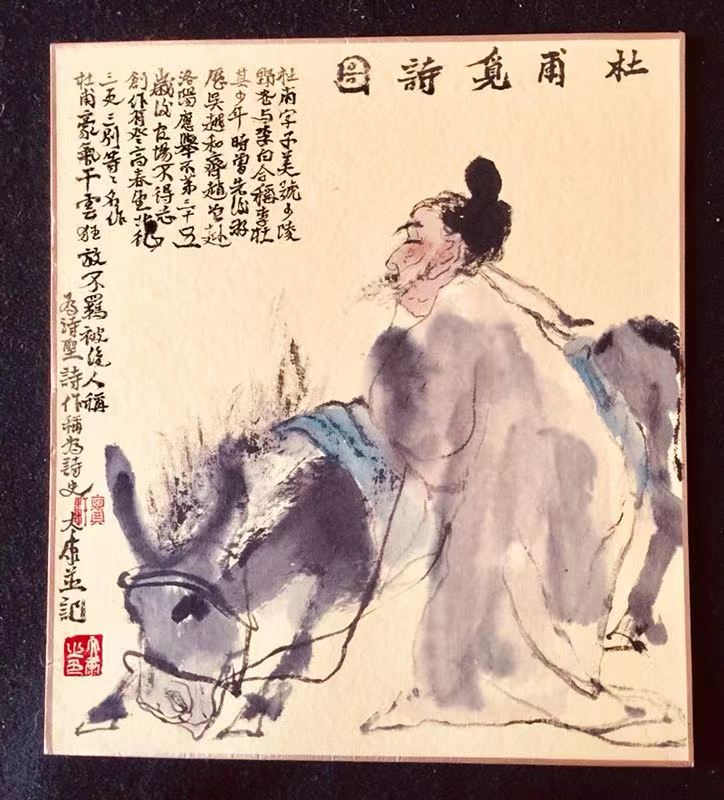 杜甫覓詩啚
杜甫字子美號少陵
野老与李白合稱李杜
其少年時曽先後游
歷吳越和齊趙曽赴
洛陽應舉不第三十五
歲後官場不得志
創作有登高春望北征
三吏三別等等名作
杜甫豪氣干雲狂放不羈被後人稱
為詩聖詩作稱為詩史 大康並記
大康之印